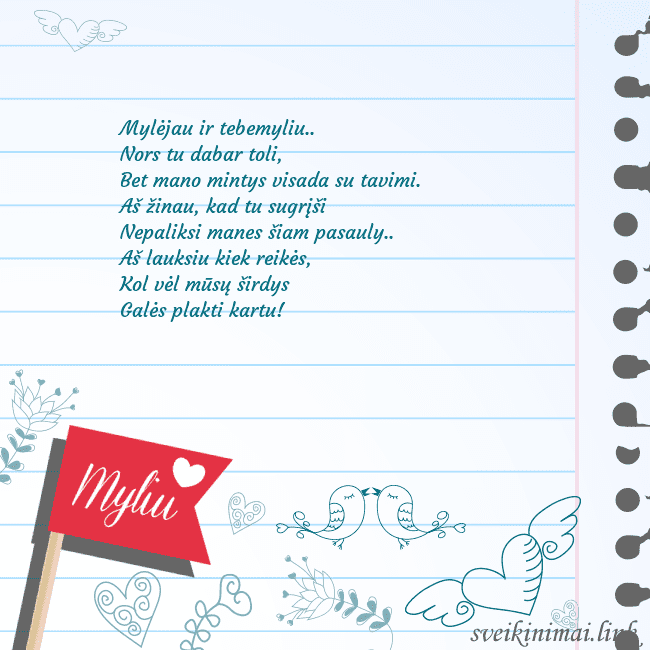 Mylėjau ir tebemyliu..
Nors tu dabar toli,
Bet mano mintys visada su tavimi.
Aš žinau, kad tu sugrįši
Nepaliksi manes šiam pasauly..
Aš lauksiu kiek reikės,
Kol vėl mūsų širdys
Galės plakti kartu!
Myliu
sveikinimai.link